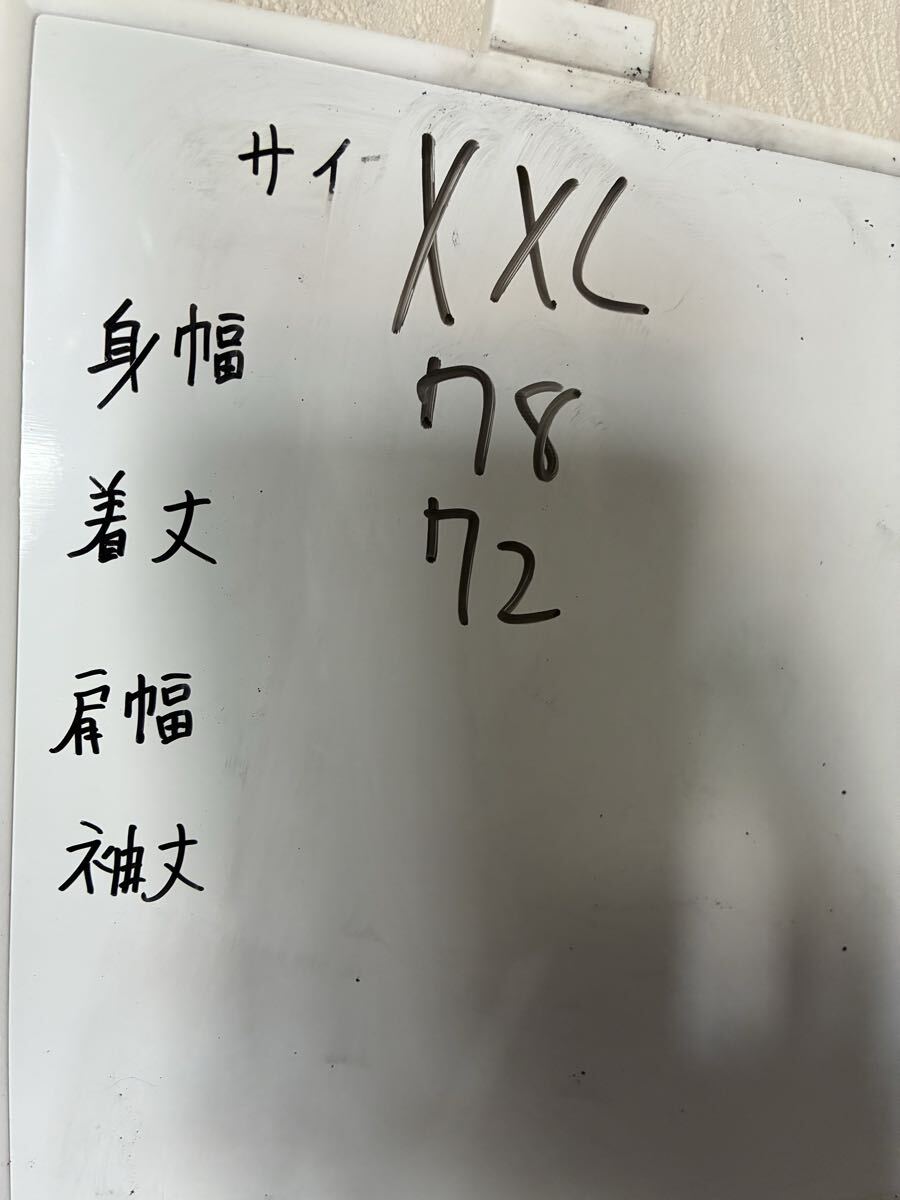 サイ XXL
身幅 78
着丈 72
肩幅
袖丈